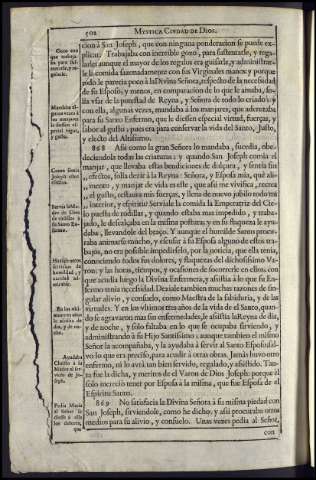 502
MYSTICA CIVDAD DE DIOS.
ción à San Joseph, que con ninguna ponderacion se puede ex-
plicar. Trabajaba con increible gozo, para sustentarle, y rega-
larle: aunque el mayor de los regalos era guisarle, y administrar-
le la comida sazonadamente con sus Virginales manos: y porque
todo le parecia poco à la Divina Señora, respecto de la necessidad
de su Esposo, y menos, en comparacion de lo que le amaba, so-
lia vsar de la potestad de Reyna, y Señora de todo lo criado: y
con ella, algunas vezes, mandaba à los manjares, que aderezaba
para su Santo Enfermo, que le diessen especial virtud, fuerças,
sabor al gusto; pues era para conservar la vida del Santo, Justo,
y electo del Altissimo.
868 Assi como la gran Señora lo mandaba, sucedia, obe-
deciendola todas las criaturas: y quando San Joseph comia el
manjar, que llevaba estas bendiciones de dulçura, y sentia sus
efectos, solia dezir à la Reyna: Señora, y Esposa mia, què ali-
mento, y manjar de vida es este, que assi me vivifica, recrea
el gusto, restaura mis fuerças, y llena de nuevo jubilo todo mi
interior, y espiritu? Serviale la comida la Emperatriz del Cie-
lo puesta de rodillas, y quando estaba mas impedido, y traba-
jado, le descalçaba en la misma postura; y en su flaqueza le ayu-
daba, llevandole del braço. Y aunque el humilde Santo procu-
raba animarse mucho, y escusar à su Esposa alguno de estos tra-
bajos, no era possible impedirselo, por la noticia, que ella tenia,
conociendo todos sus dolores, y flaquezas del dichosissimo Va-
ron; y las horas, tiempos, y ocasiones de socorrerle en ellos: con
que acudia luego la Divina Enfermera, y assistia à lo que su En-
fermo tenia necessidad. Deziale tambien muchas razones de sin-
gular alivio, y consuelo, como Maestra de la sabiduria, y de las
virtudes. Y en los vltimos tres años de la vida de el Santo, quan-
do se agravaron mas sus enfermedades, le assistia la Reyna de dia,
y de noche, y solo faltaba en lo que se ocupaba sirviendo, y
administrando à su Hijo Santissimo; aunque tambien el mismo
Señor la acompañaba, y la ayudaba à servir al Santo Esposo, sal-
vo lo que era preciso, para acudir à otras obras. Jamàs huvo otro
enfermo, ni lo avrà tan bien servido, regalado, y assistido. Tan-
ta fue la dicha, y meritos de el Varon de Dios Joseph; porque èl
solo mereciò tener por Esposa à la misma, que fue Esposa de el
Espiritu Santo.
869 No satisfacia la Divina Señora à su misma piedad con
San Joseph, sirviendole, como he dicho, y assi procuraba otros
medios para su alivio, y consuelo. Unas vezes pedia al Señor,
con